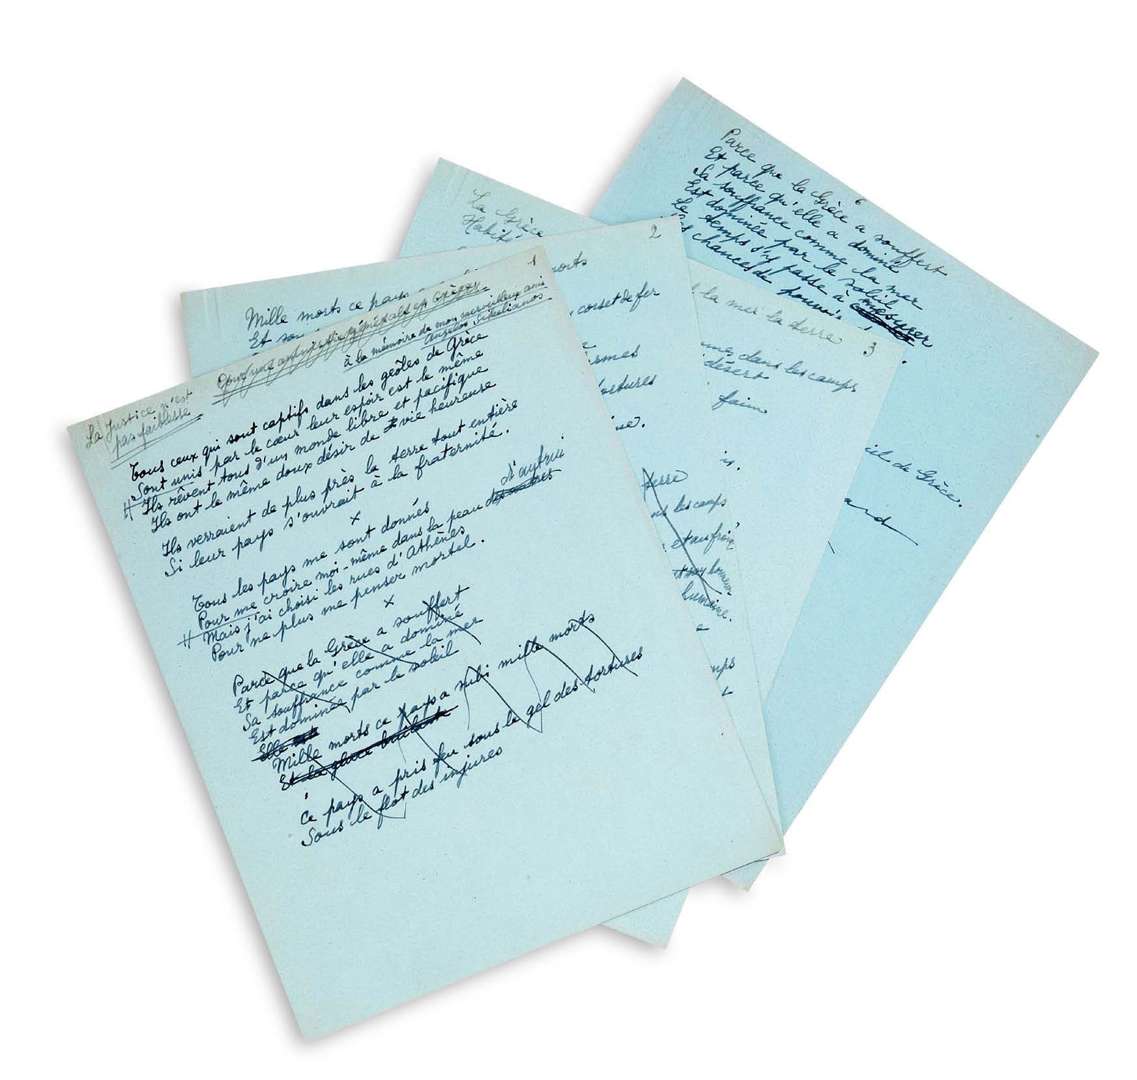 1
La Justice n'est
pas faiblesse
Pour une amnistie générale en Grèce
à la mémoire de mon merveilleux ami
Angelos Sikelianos
Tous ceux qui sont captifs dans les geôles de Grèce
Sont unis par le cœur leur espoir est le même
Ils rêvent tous d'un monde libre et pacifique
Ils ont le même doux désir de vie heureuse
Ils verraient de plus près la terre tout entière
Si leur pays s'ouvrait à la fraternité.
x
Tous les pays me sont donnés
Pour me croire moi-même dans la peau d'autrui
Mais j'ai choisi les rues d'Athènes
Pour ne plus me penser mortel.
x
Parce que la Grèce a souffert
Et parce qu'elle a dominé
Sa souffrance comme la mer
Est dominée par le soleil
Elle est
Mille morts ce pays a subi mille morts
Et la glace brûlant
Ce pays a pris feu sous le gel des tortures
Sous le flot des injures
2
Mille morts ce pays
morts
Et
corset de fer
tortures
terre
les camps
et au froid
humaine.
3
la mer la terre
dans les camps
désert
faim
La Grèce
6
Parce que la Grèce a souffert
Et parce qu'elle a dominé
Sa souffrance comme la mer
Est dominée par le soleil
Le temps s'y passe à mesurer
chances de pouvoir
de Grèce.